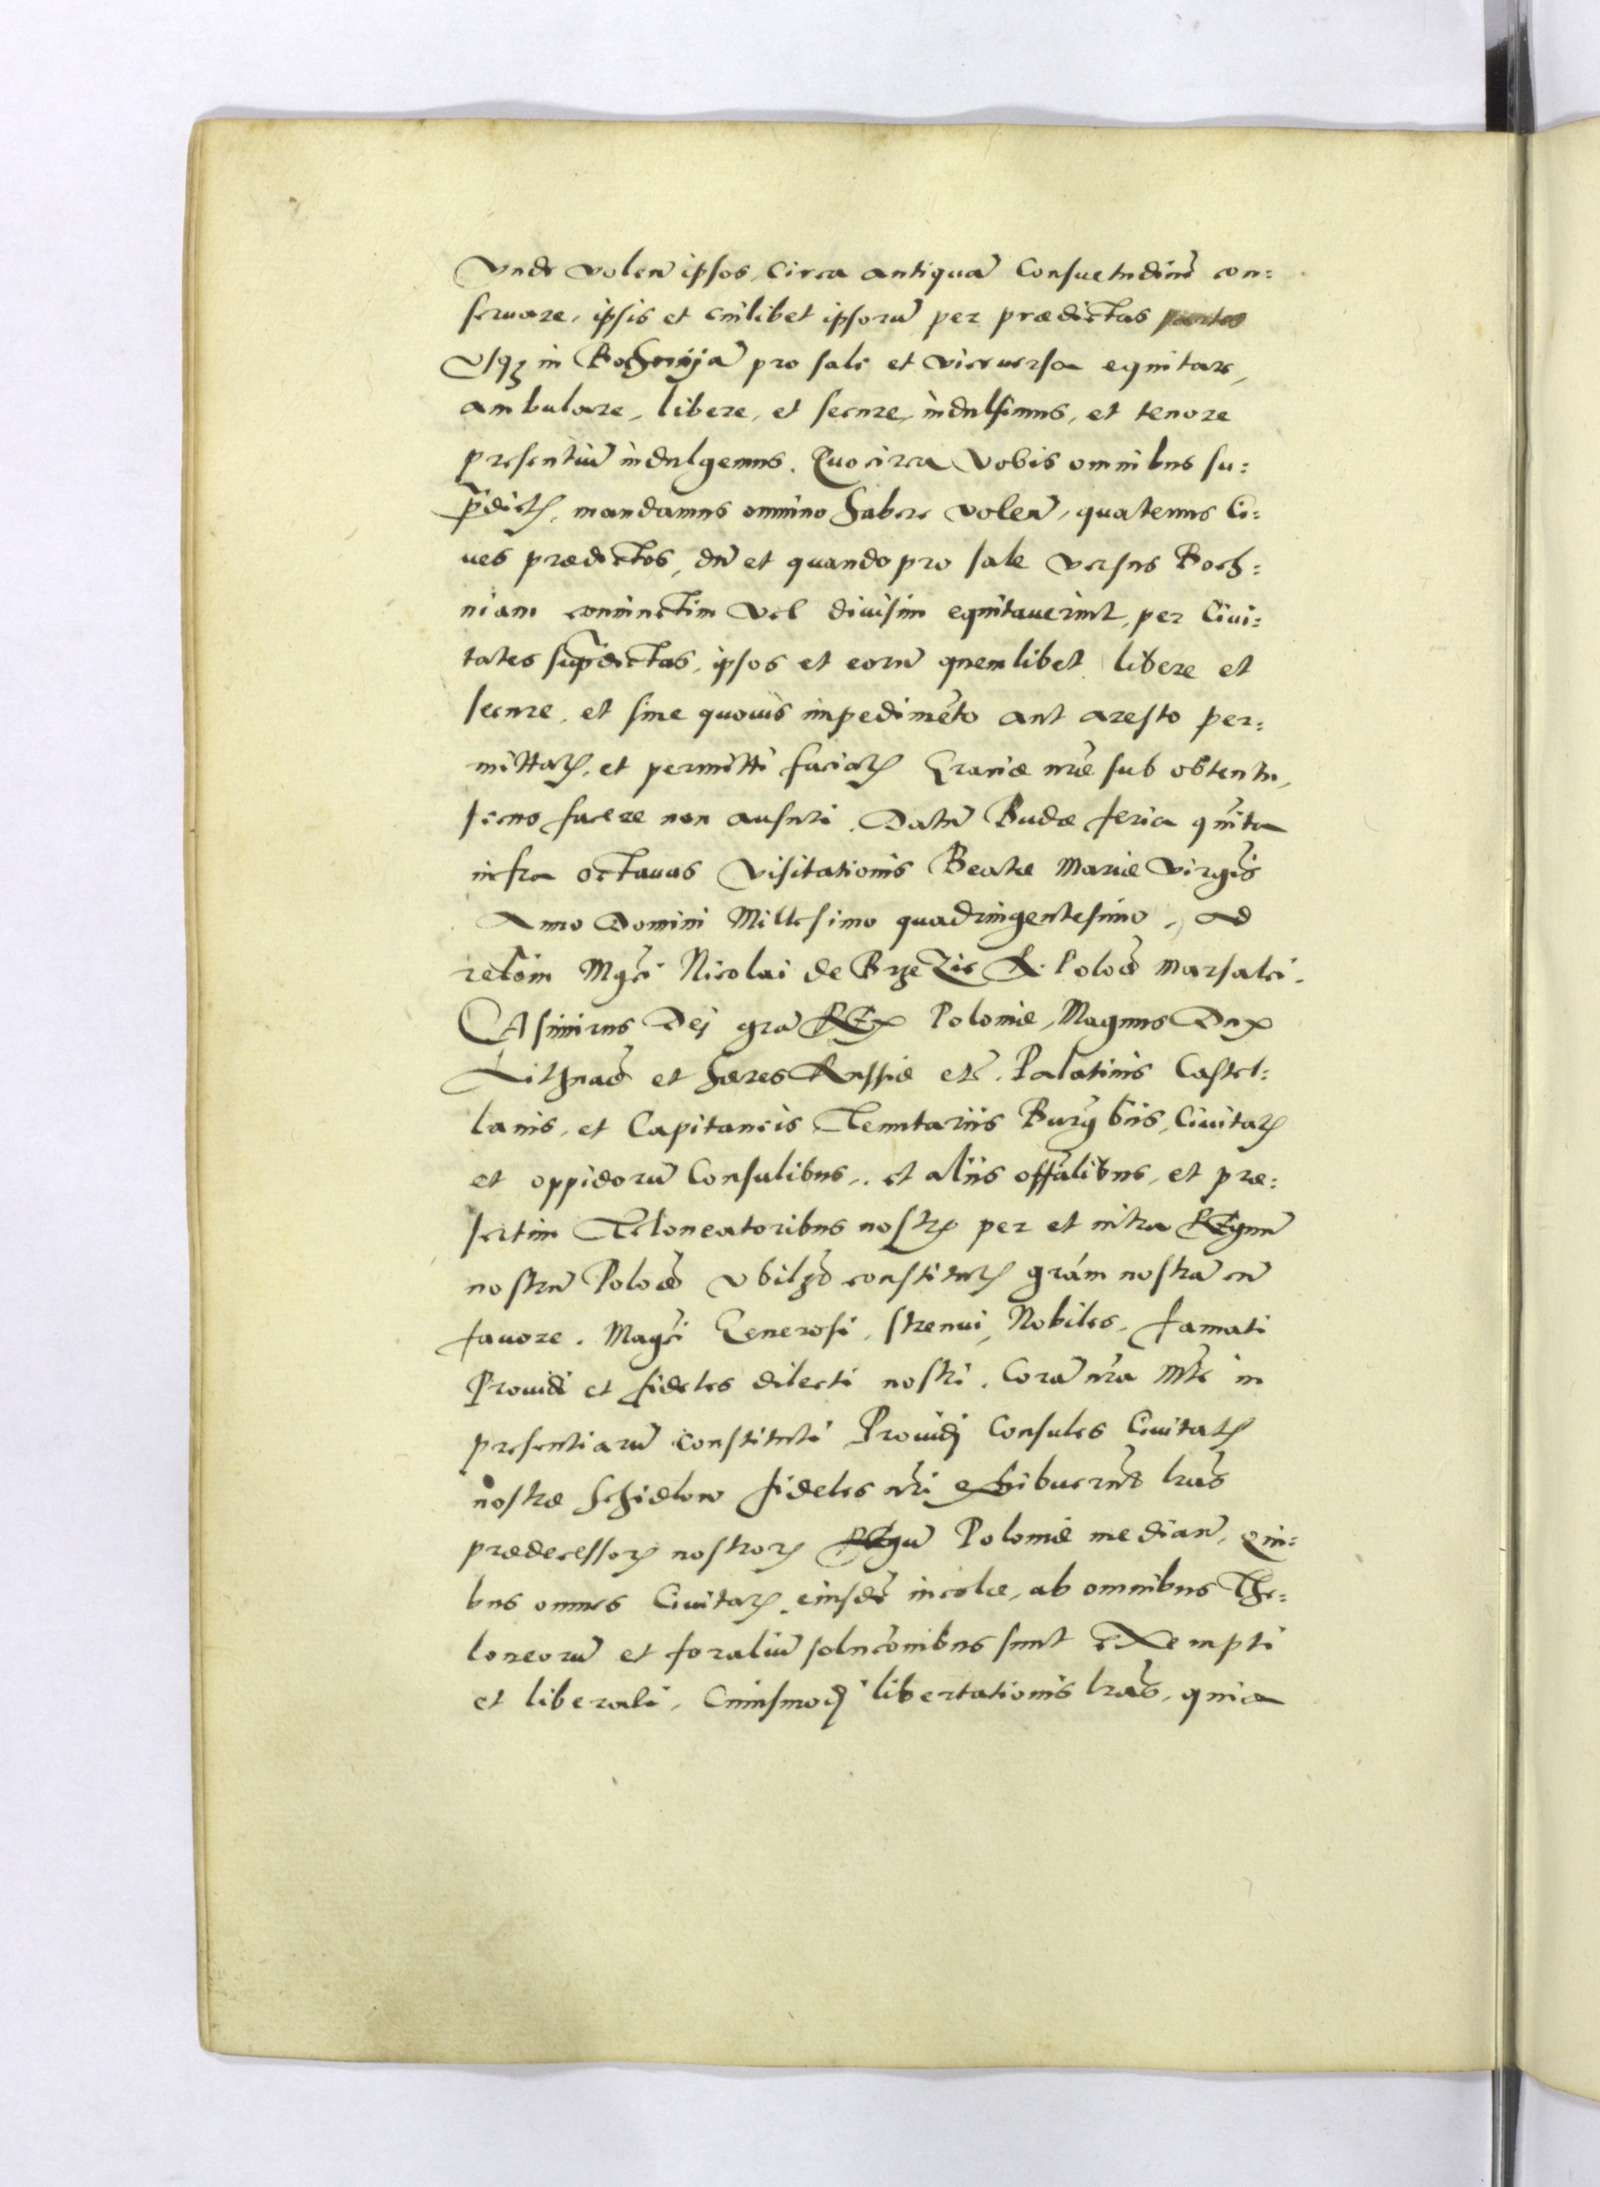 Vnde volen̄ ipsos, circa antiquā Consuetudinē con:
seruare, ipsis et cuilibet ipsorū per prædictas partes
Vsqȝ in Bochnijā pro sale et viceuersa equitare,
ambulare, libere, et secure, indulsimus, et tenore
presentiū indulgemus. Quocirca Vobis omnibus su:
p̄dictꝭ, mandamus omnino habere volen̄, quatenus Ci:
ues prædictos, dū et quando pro sale versus Boch:
niam coniunctim vel diuisim equitauerint, per Ciui:
tates sup̄dictas, ipsos et eorū quemlibet libere et
secure, et sine quouis impedimēto aut aresto per:
mittatꝭ, et permitti faciatꝭ Graciæ nr̄æ sub obtentu,
secus facere non ausuri. Datū Budæ feria quīta
infra octauas Visitationis Beatæ Mariæ Virgīs
Anno Domini Millesimo quadringentesimo, Ad
relōm Mgc̄i Nicolai de Brzezie R. Polōæ Marsalci.
CAsimirus Dei gra REx Poloniæ, Magnus Dux
Lithuāæ et hæres Russiæ etc̄. Palatinis Castel:
lanis, et Capitaneis Tenutariis Burgb̄iis, Ciuitatꝭ
et oppidorū Consulibus, et aliis offālibus, et præ:
sertim Teloneatoribus nostrꝭ per et intra REgnū
nostrū Polōæ vbilȝꝫ constitutꝭ grām nostrā cū
fauore. Magc̄i Generosi, strenui, Nobiles, famati
Prouidi et fideles dilecti nostri. Corā nr̄a Mt̄e in
presentiarū constituti Prouidi Consules Ciuitatꝭ
nostræ Schidlow fideles nr̄i exhibuerūt lr̄as
prædecessorꝭ nostrorꝭ REgū Poloniæ median̄, Qui:
bus omnes Ciuitatꝭ eiusdē incolæ, ab omnibus The:
loneorū et foraliū solucōnibus sunt eXempti
et liberati, Cuiusmodi libertationis lr̄as, quia